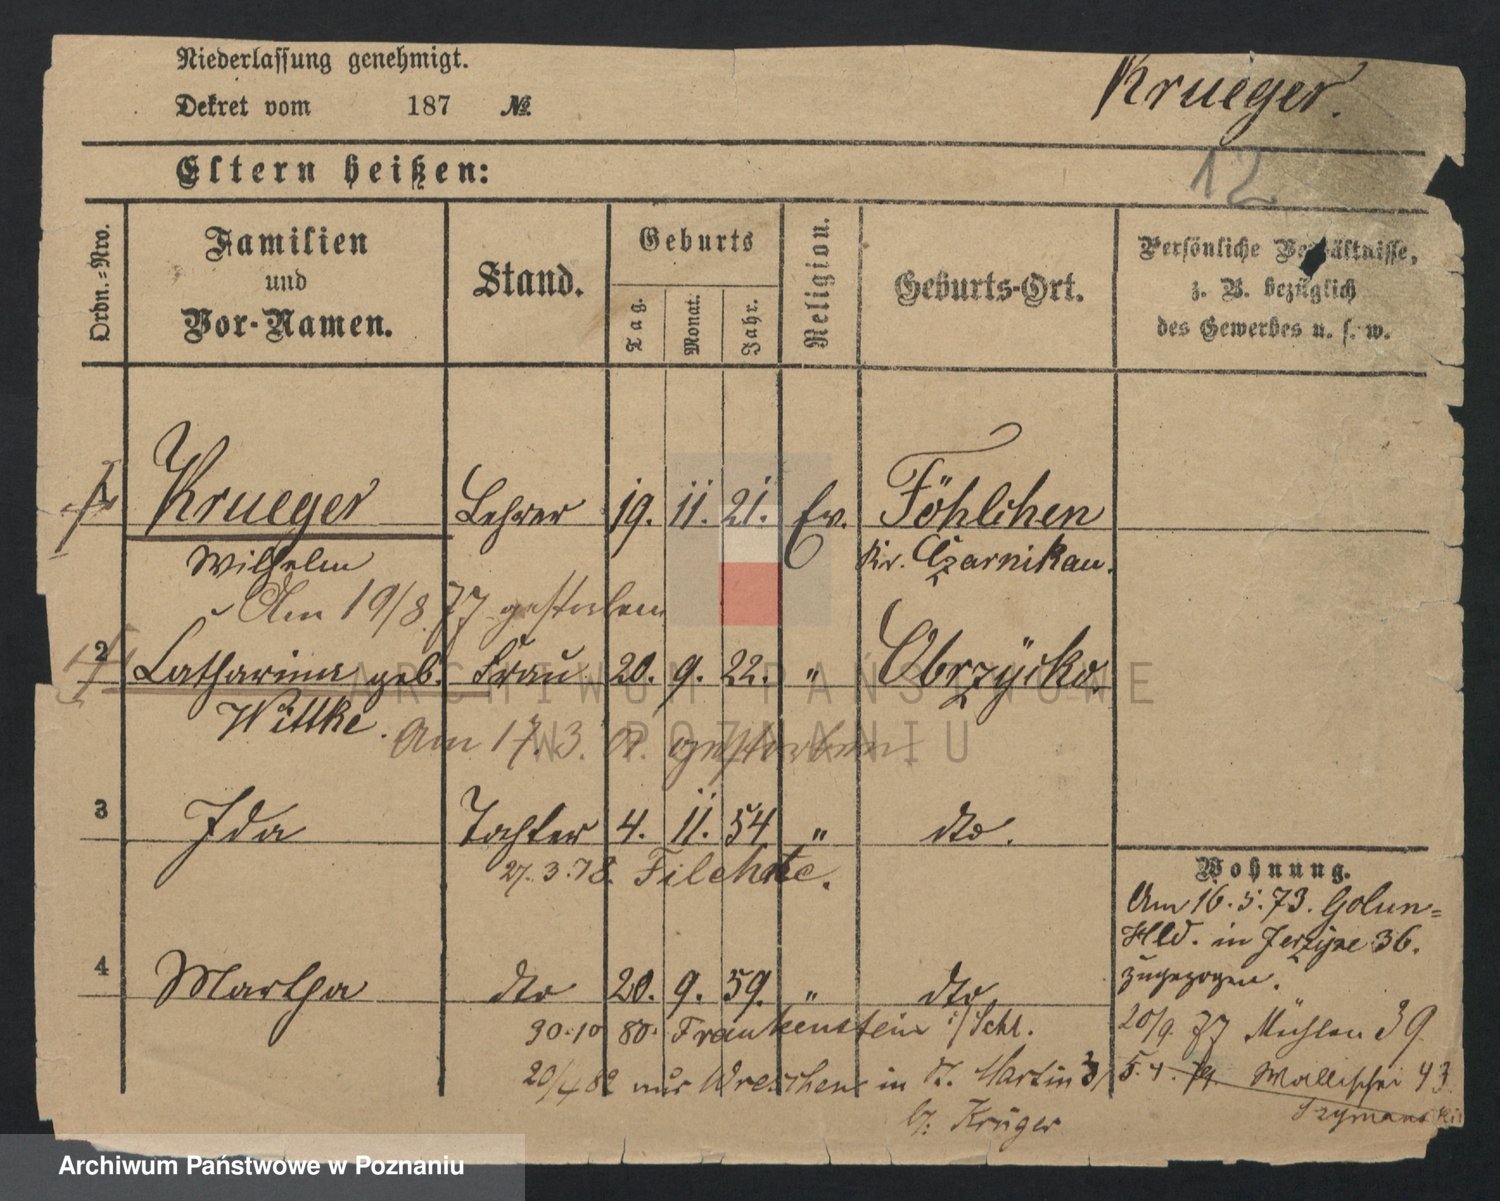 Niederlassung genehmigt.
Krueger.
Dekret vom 187 №
12
Eltern heißen:
Ordn.=Nro.
Familien und Vor-Namen.
Stand.
Geburts
Tag. Monat. Jahr.
Religion.
Geburts-Ort.
Persönliche Verhältnisse,
z. B. bezüglich
des Gewerbes u. s. w.
1 Krueger Lehrer 19. 11. 21. Ev. Föhlchen
Wilhelm Kr. Czarnikau.
Am 19/8 77 gestorben
2 Catharina geb. Frau 20. 9. 22. " Obrzycko.
Wittke.
Am 17. 3. gestorben
3 Ida Tochter 4. 11. 54 " dto.
27.3.78. Filehne.
Wohnung.
Am 16.5.73. Golun=
Hld. in Jerzyce 36.
zugezogen.
4 Martha dto 20. 9. 59. " dto.
30.10 80. Frankenstein i/Schl.
20/9. 77 Mühlen 39
20/4 82 aus Wreschen in St. Martin
5.4.79 Wallischei 43
b. Krüger
Szymanski
ARCHIWUM PAŃSTWOWE
W POZNANIU
Archiwum Państwowe w Poznaniu